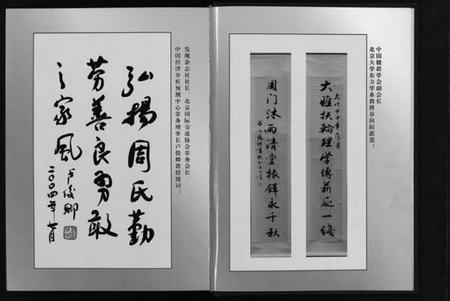 发现杂志社社长、北京国际交流协会常务会长、
中国经济分析预测中心常务理事长卢俊卿教授题词：
弘扬周氏勤
劳善良勇敢
之家风 卢俊卿
二〇〇四年七月
中国楹联学会副会长
北京大学东方学系教授谷向阳联墨：
大雅扶轮理学传薪延一线
周门沐雨清堂振铎永千秋